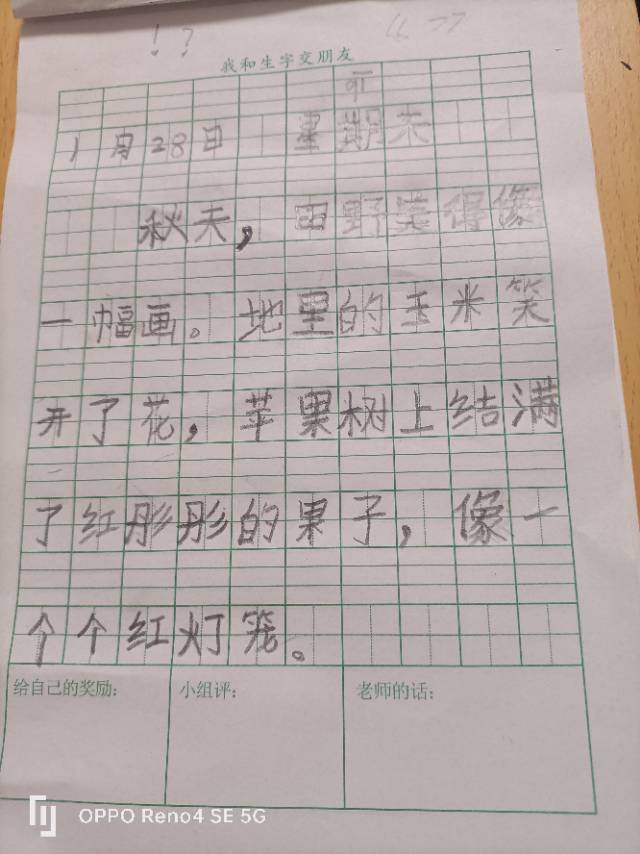 ！？ “ ”
我和生字交朋友
1月28日 星期末
秋天，田野美得像
一幅画。地里的玉米笑
开了花，苹果树上结满
了红彤彤的果子，像一
个个红灯笼。
给自己的奖励： 小组评： 老师的话：
OPPO Reno4 SE 5G